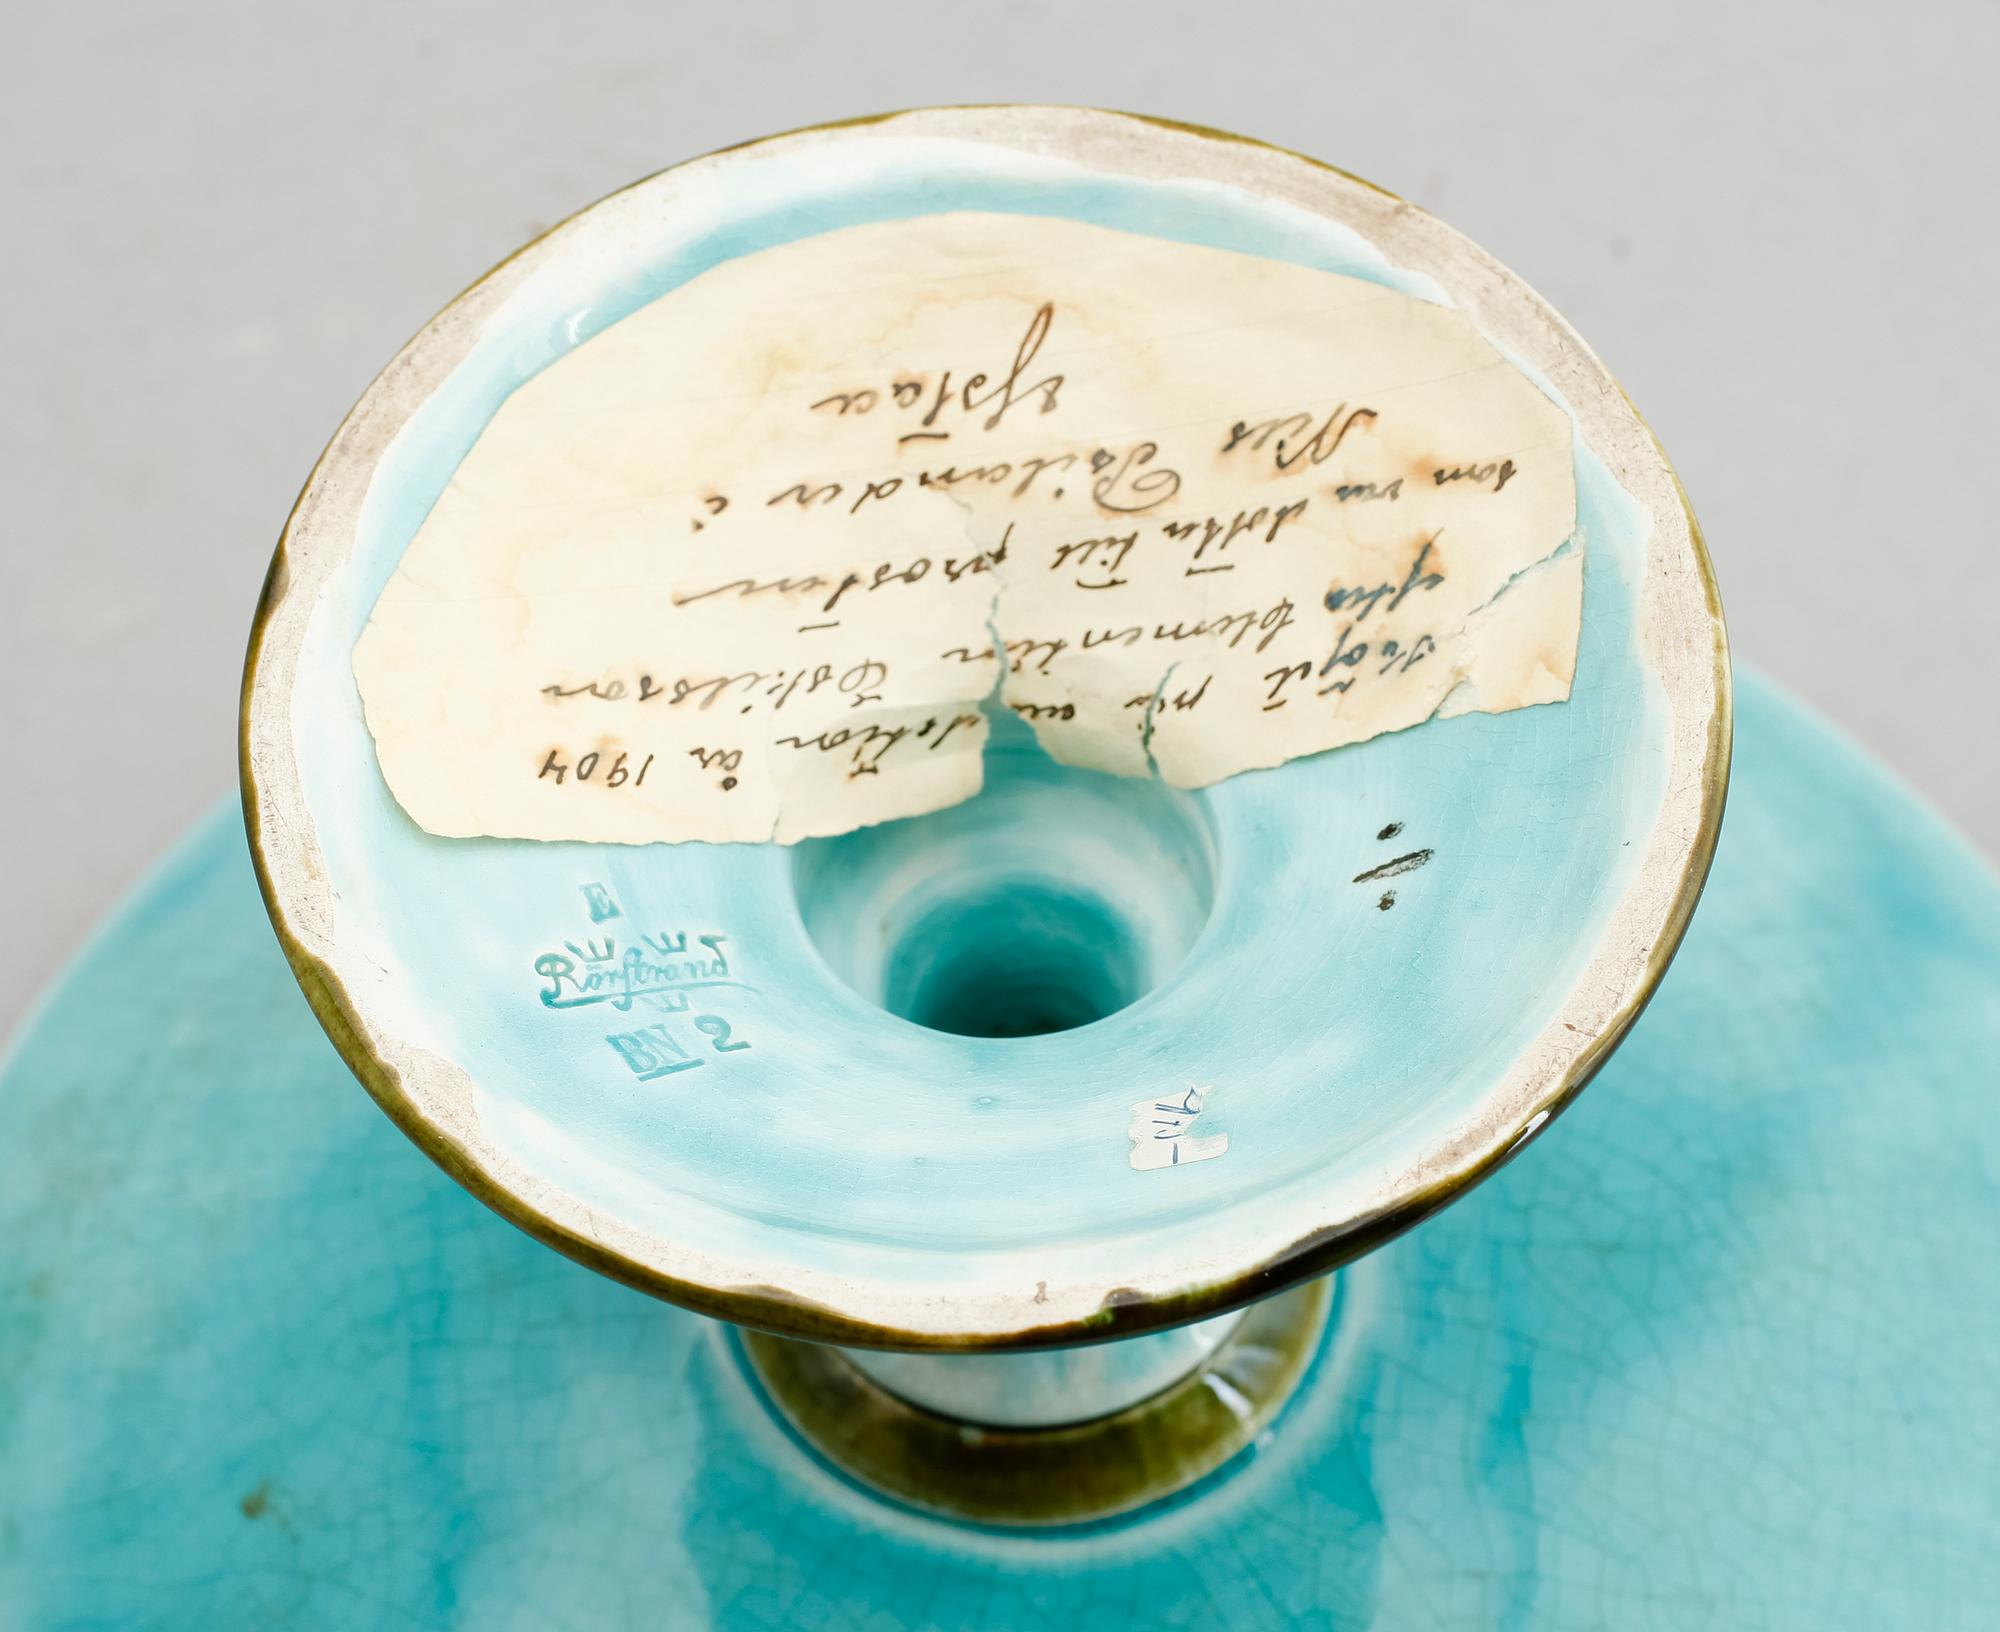 Köpt på auktion år 1904
efter Clementin Eskilsson
som var dotter till prosten
Nils Psilander i
E
Rörstrand
BN 2